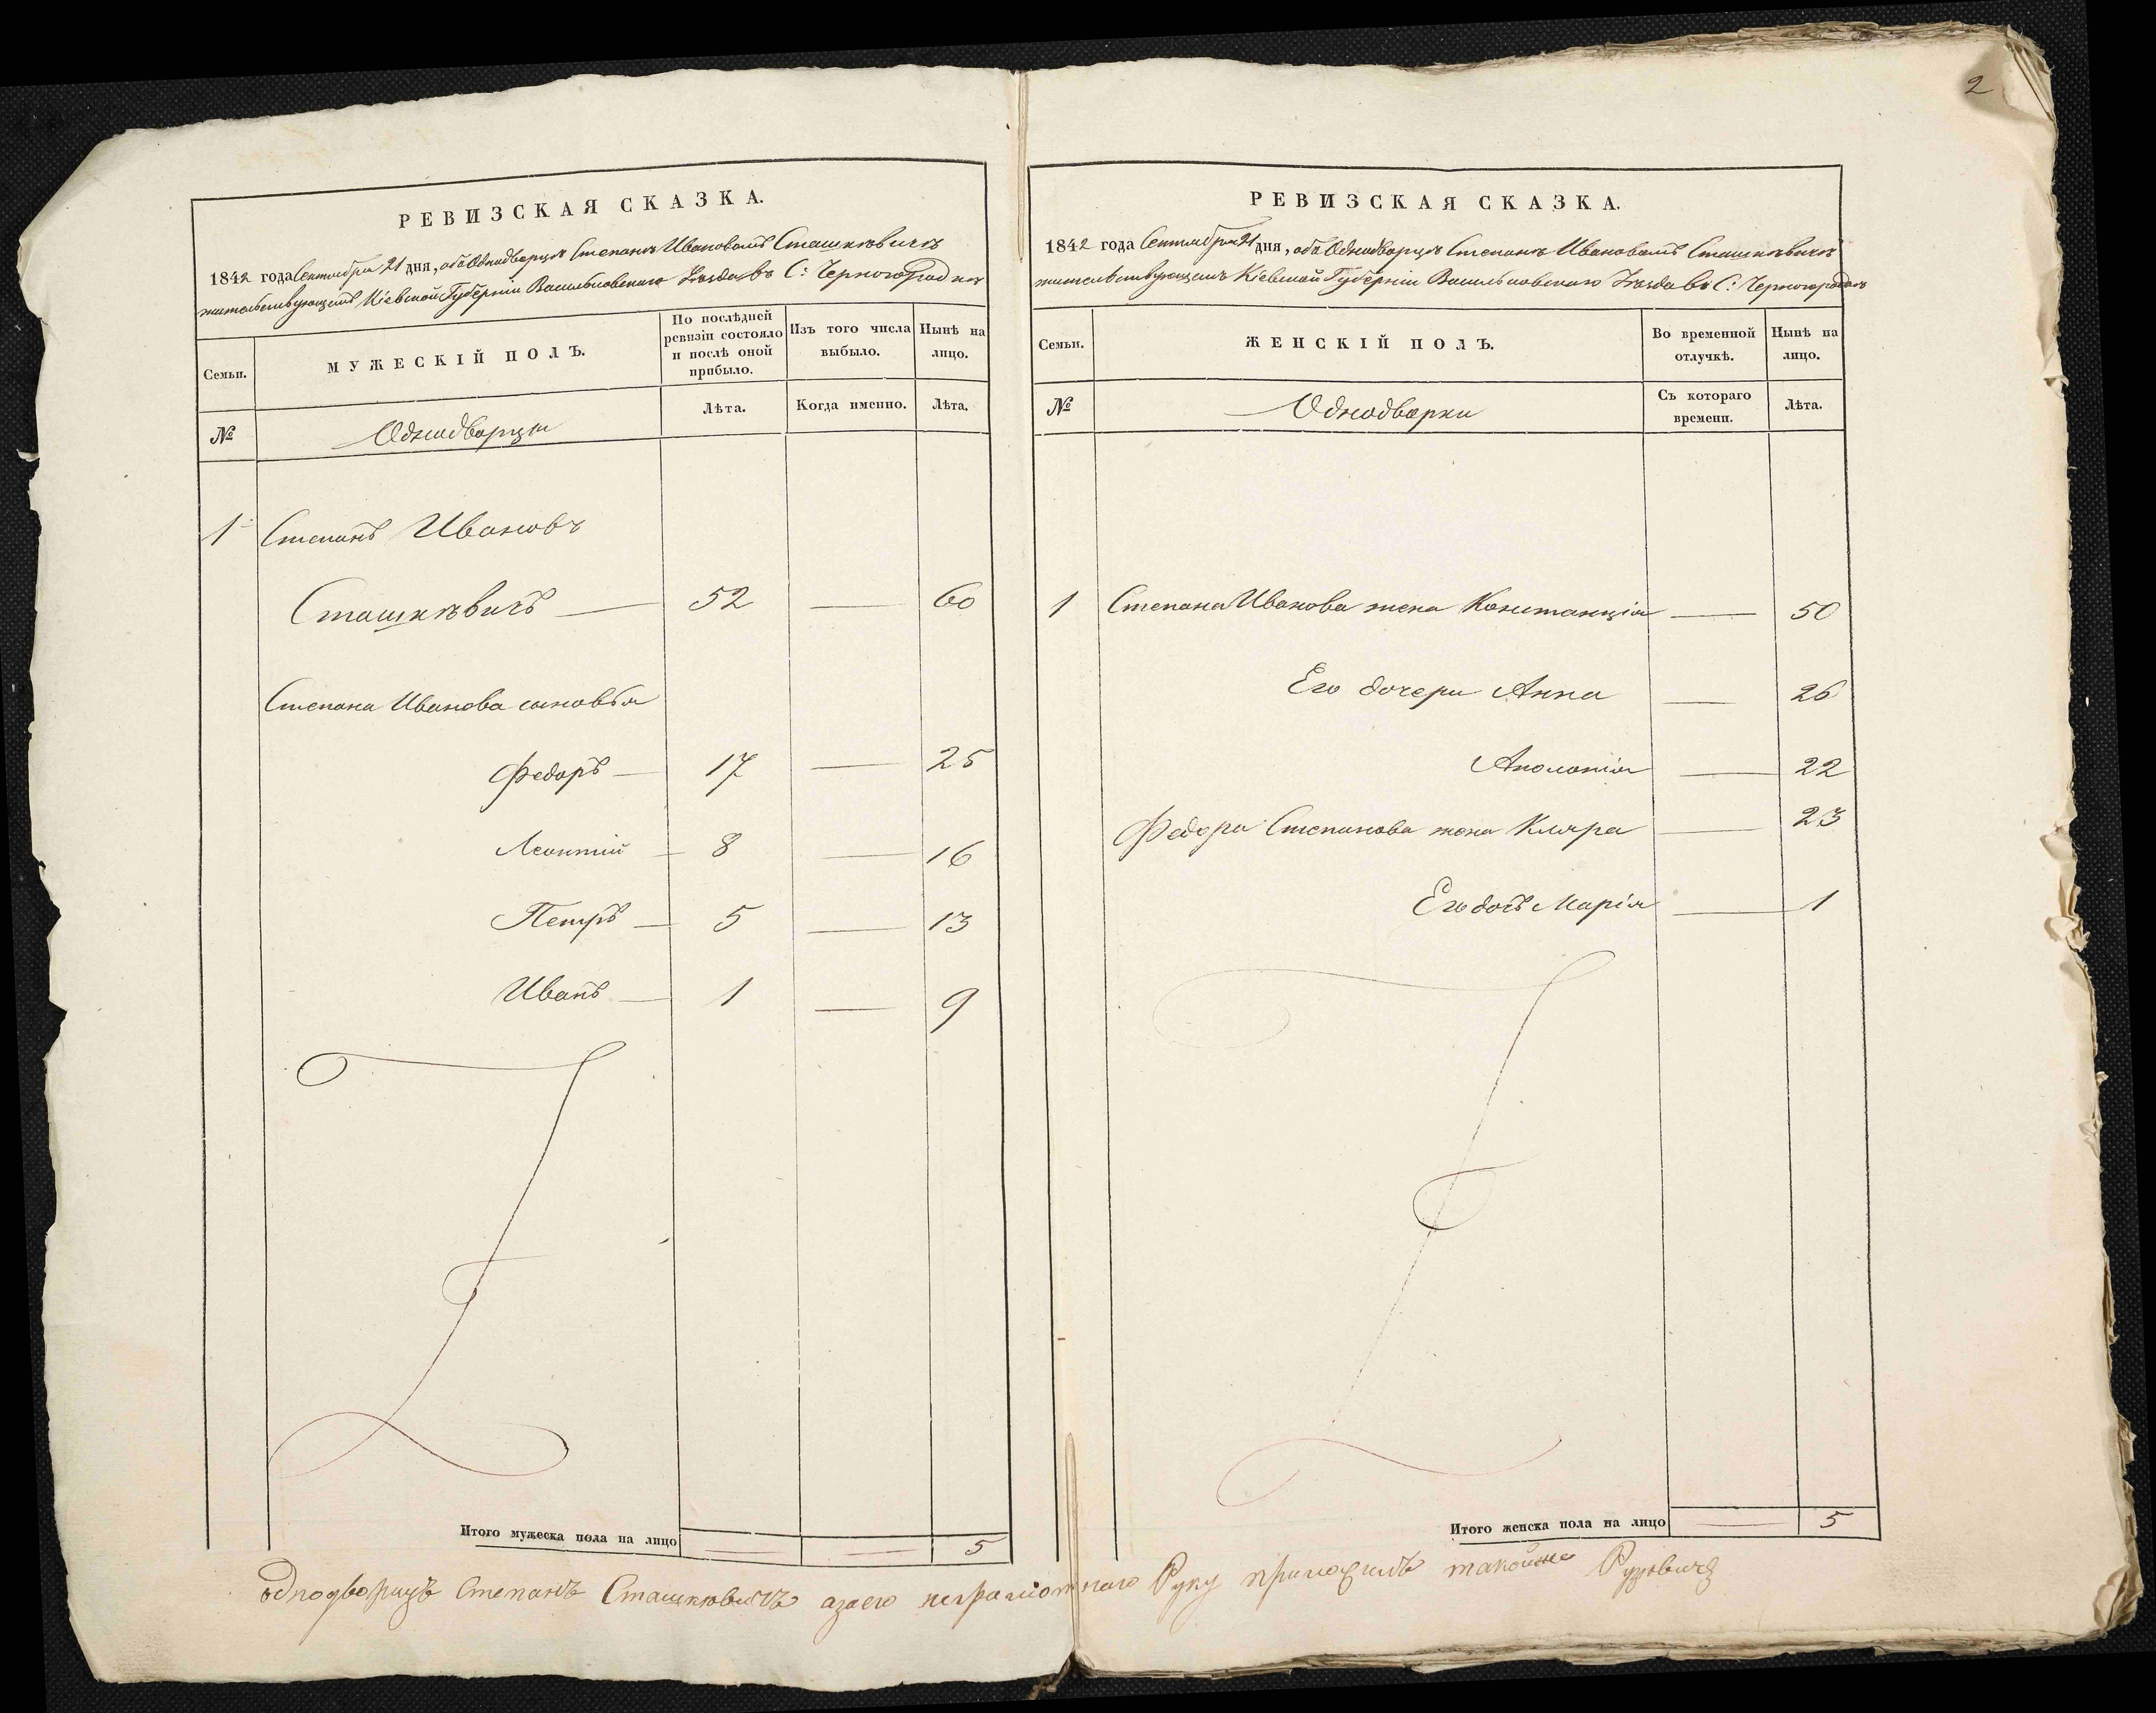 2
РЕВИЗСКАЯ СКАЗКА.
1842 года Сентября 21 дня, объ Однодворцѣ Степанѣ Ивановомъ Сташкѣвичѣ
жительствующемъ Кіевской Губерніи Васильковскаго Уѣзда въ С: Черногородкѣ
Семьи.
МУЖЕСКІЙ ПОЛЪ.
По послѣдней
ревизіи состояло
и послѣ оной
прибыло.
Изъ того числа
выбыло.
Нынѣ на
лицо.
№
Однодворцы
Лѣта.
Когда именно.
Лѣта.
1 Степанъ Ивановъ
Сташкѣвичъ — 52 — 60
Степана Иванова сыновья
Федоръ — 17 — 25
Леонтій — 8 — 16
Петръ — 5 — 13
Иванъ — 1 — 9
Итого мужеска пола на лицо — — 5
РЕВИЗСКАЯ СКАЗКА.
1842 года Сентября 21 дня, объ Однодворцѣ Степанѣ Ивановомъ Сташкѣвичѣ
жительствующемъ Кіевской Губерніи Васильковскаго Уѣзда въ С: Черногородкѣ
Семьи.
ЖЕНСКІЙ ПОЛЪ.
Во временной
отлучкѣ.
Нынѣ на
лицо.
№
Однодворки
Съ котораго
времени.
Лѣта.
1 Степана Иванова жена Констанція — 50
Его дочери Анна — 26
Аполонія — 22
Федора Степанова жена Кляра — 23
Его дочь Марія — 1
Итого женска пола на лицо — 5
однодворицъ Степанъ Сташкѣвичъ азаего неграмотнаго Руку приложилъ такойже